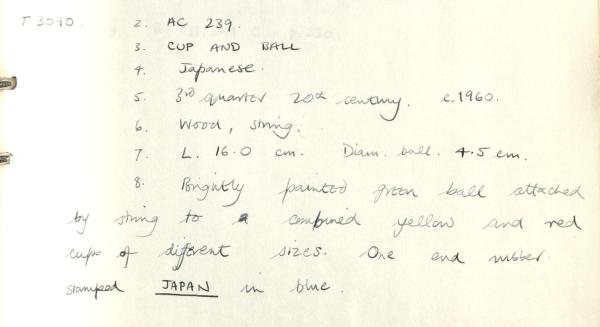 T 3090. 2. AC 239.
3. CUP AND BALL
4. Japanese.
5. 3rd quarter 20th century. c.1960.
6. Wood, string.
7. L. 16.0 cm. Diam. ball. 4.5 cm.
8. Brightly painted green ball attached
by string to a combined yellow and red
cups of different sizes. One end rubber
stamped JAPAN in blue.